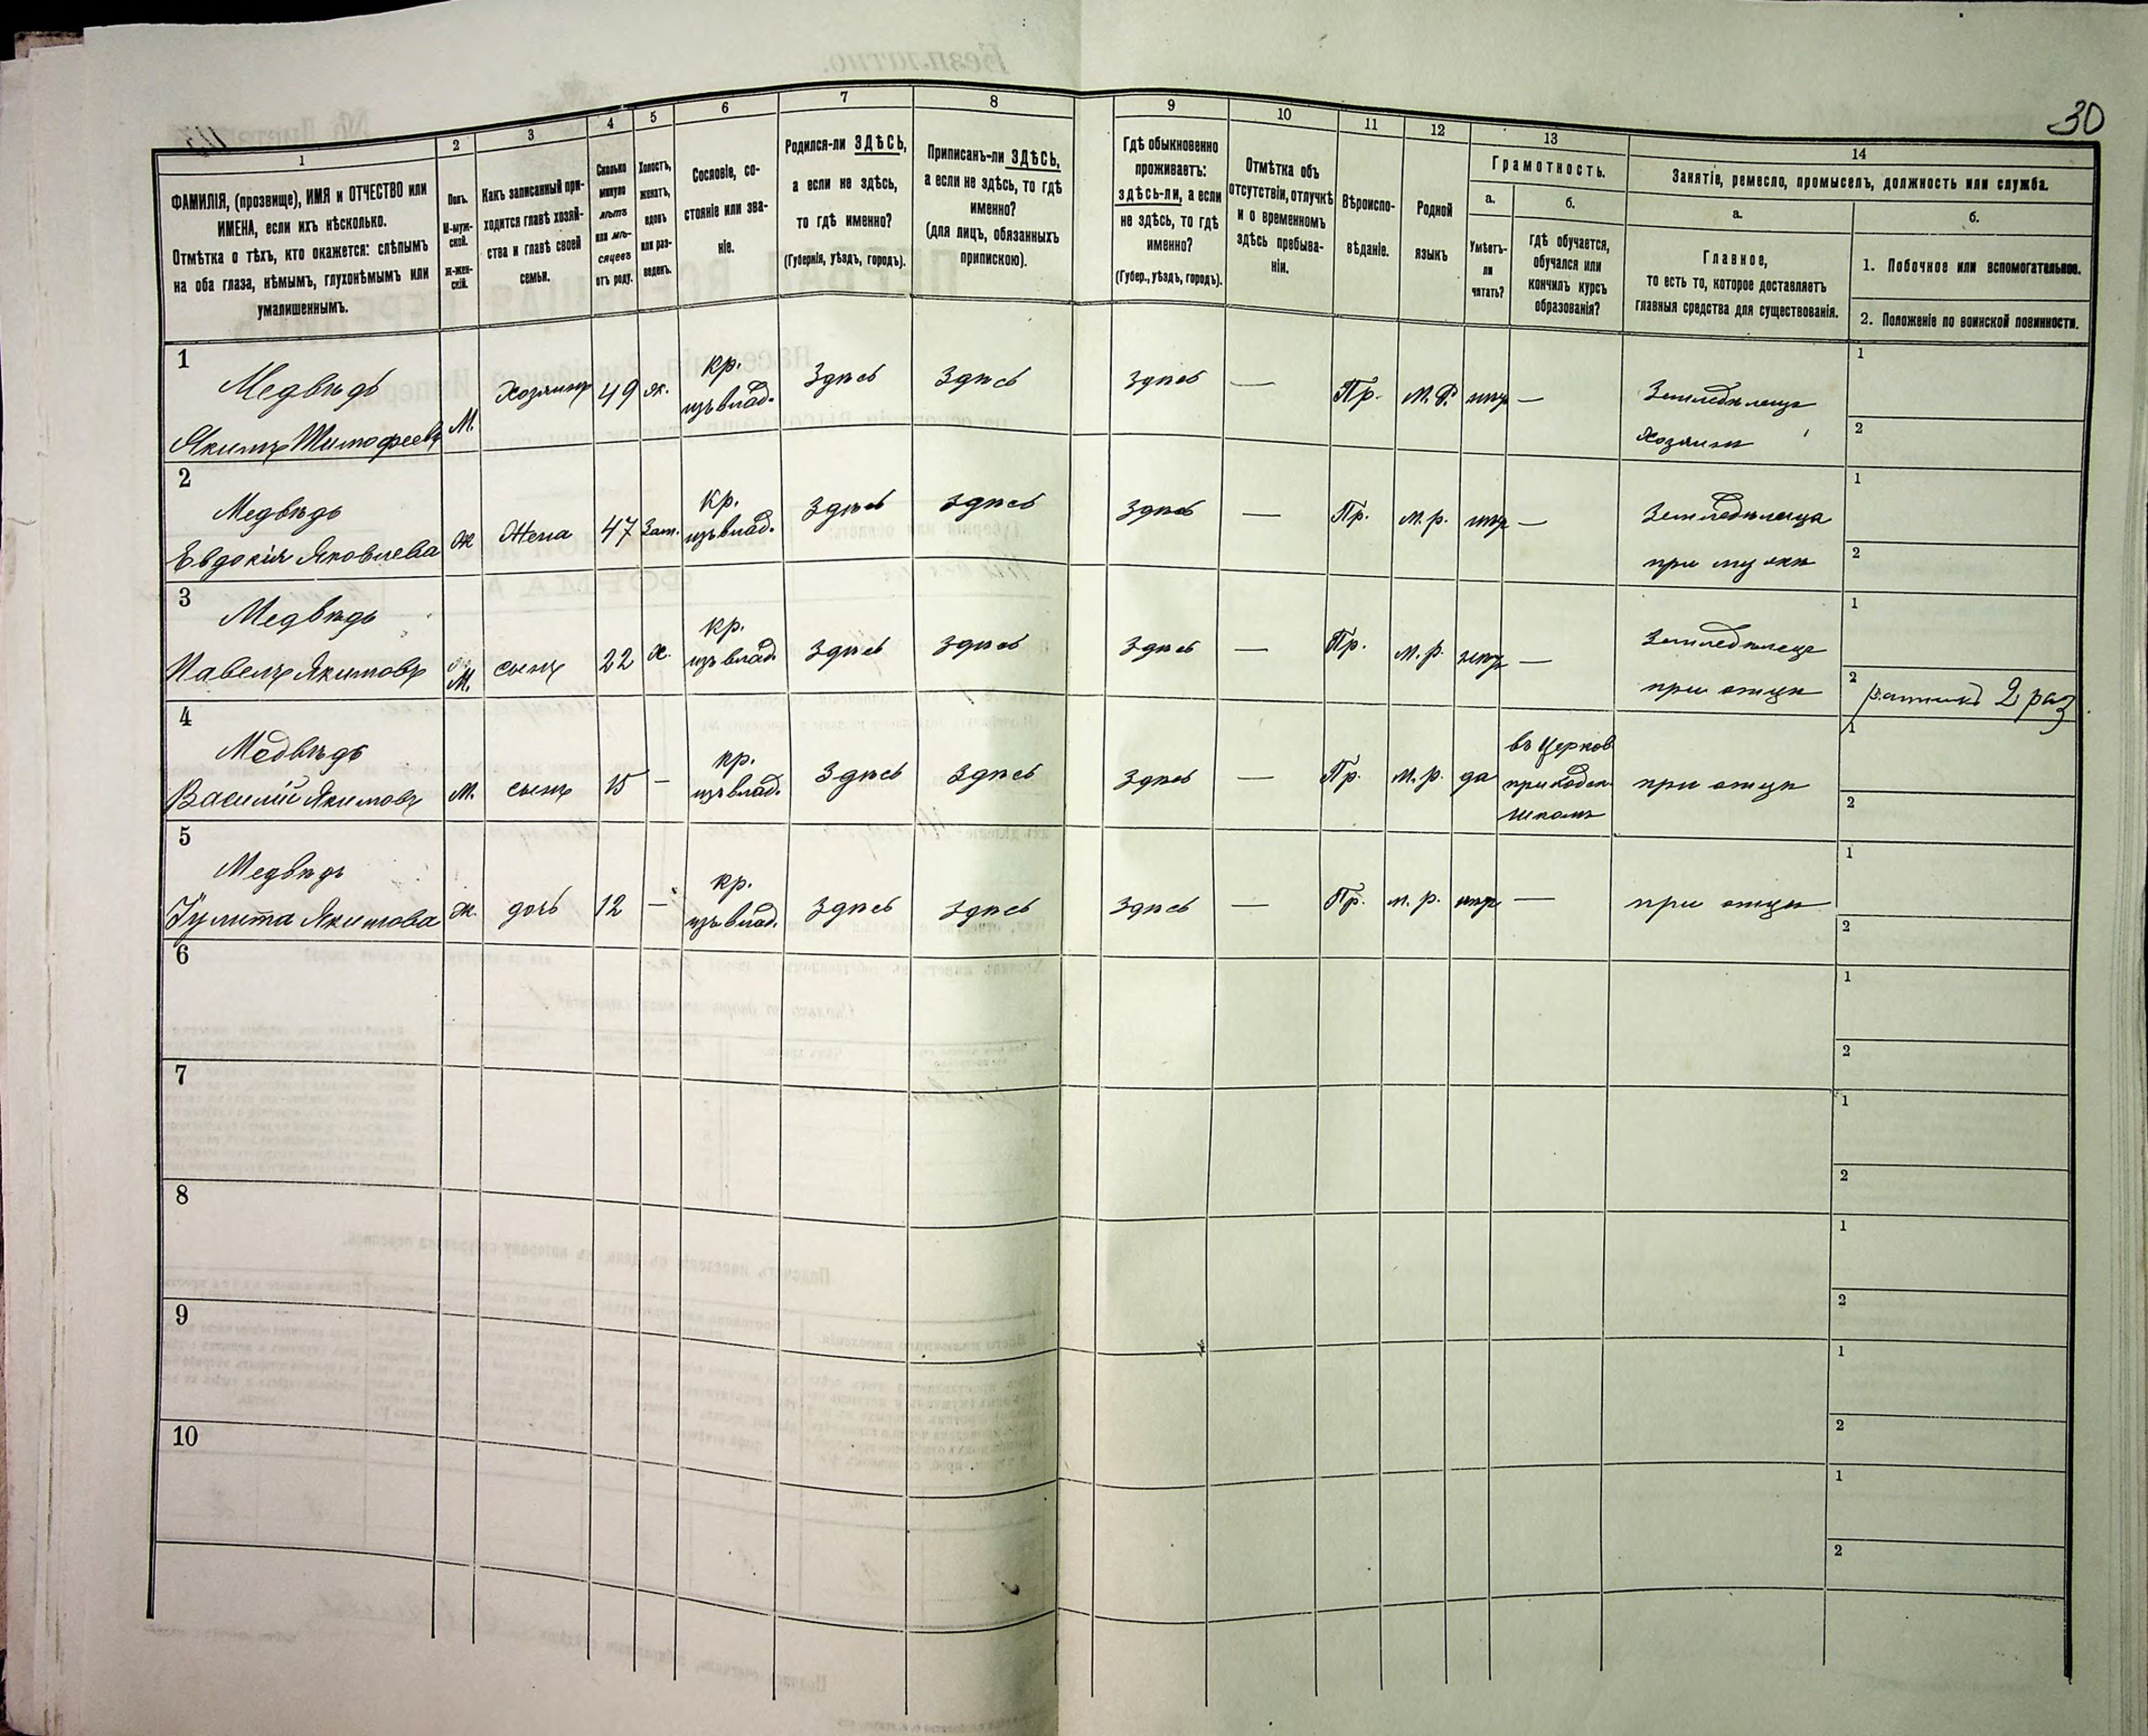 30
1
2
3
4
5
6
7
8
9
10
11
12
13
14
ФАМИЛІЯ, (прозвище), ИМЯ и ОТЧЕСТВО или
ИМЕНА, если ихъ нѣсколько.
Отмѣтка о тѣхъ, кто окажется: слѣпымъ
на оба глаза, нѣмымъ, глухонѣмымъ или
умалишеннымъ.
Полъ.
М-муж-
ской.
Ж-жен-
скій.
Какъ записанный при-
ходится главѣ хозяй-
ства и главѣ своей
семьи.
Сколько
минуло
лѣтъ
или мѣ-
сяцевъ
отъ роду.
Холостъ,
женатъ,
вдовъ
или раз-
веденъ.
Сословіе, со-
стояніе или зва-
ніе.
Родился-ли ЗДѢСЬ,
а если не здѣсь,
то гдѣ именно?
(Губернія, уѣздъ, городъ).
Приписанъ-ли ЗДѢСЬ,
а если не здѣсь, то гдѣ
именно?
(для лицъ, обязанныхъ
припискою).
Гдѣ обыкновенно
проживаетъ:
здѣсь-ли, а если
не здѣсь, то гдѣ
именно?
(Губер., уѣздъ, городъ).
Отмѣтка объ
отсутствіи, отлучкѣ
и о временномъ
здѣсь пребыва-
ніи.
Вѣроиспо-
вѣданіе.
Родной
языкъ
Грамотность.
а.
Умѣетъ-
ли
читать?
б.
гдѣ обучается,
обучался или
кончилъ курсъ
образованія?
Занятіе, ремесло, промыселъ, должность или служба.
а.
Главное,
то есть то, которое доставляетъ
главныя средства для существованія.
б.
1. Побочное или вспомогательное.
2. Положеніе по воинской повинности.
1
Медвѣдь
Якимъ Тимофеевъ
М.
Хозяинъ
49
ж.
кр.
изъ влад.
Здѣсь
Здѣсь
Здѣсь
—
Пр.
М. Р.
нѣтъ
—
Земледѣлецъ
Хозяинъ
1
2
2
Медвѣдь
Евдокія Яковлева
Ж
Жена
47
Зам.
кр.
изъ влад.
Здѣсь
Здѣсь
Здѣсь
—
Пр.
м. р.
нѣтъ
—
Земледѣлица
при мужѣ
1
2
3
Медвѣдь
Павелъ Якимовъ
М.
сынъ
22
х.
кр.
изъ влад
Здѣсь
Здѣсь
Здѣсь
—
Пр.
м. р.
нѣтъ
—
Земледѣлецъ
при отцѣ
1
2
ратникъ 2 раз
4
Медвѣдь
Василій Якимовъ
М.
сынъ
15
—
кр.
изъ влад.
Здѣсь
Здѣсь
Здѣсь
—
Пр.
м. р.
да
въ Церков
приходск.
школѣ
при отцѣ
1
2
5
Медвѣдь
Іулита Якимова
Ж.
дочь
12
—
кр.
изъ влад.
Здѣсь
Здѣсь
Здѣсь
—
Пр.
м. р.
нѣтъ
—
при отцѣ
1
2
6
1
2
7
1
2
8
1
2
9
1
2
10
1
2